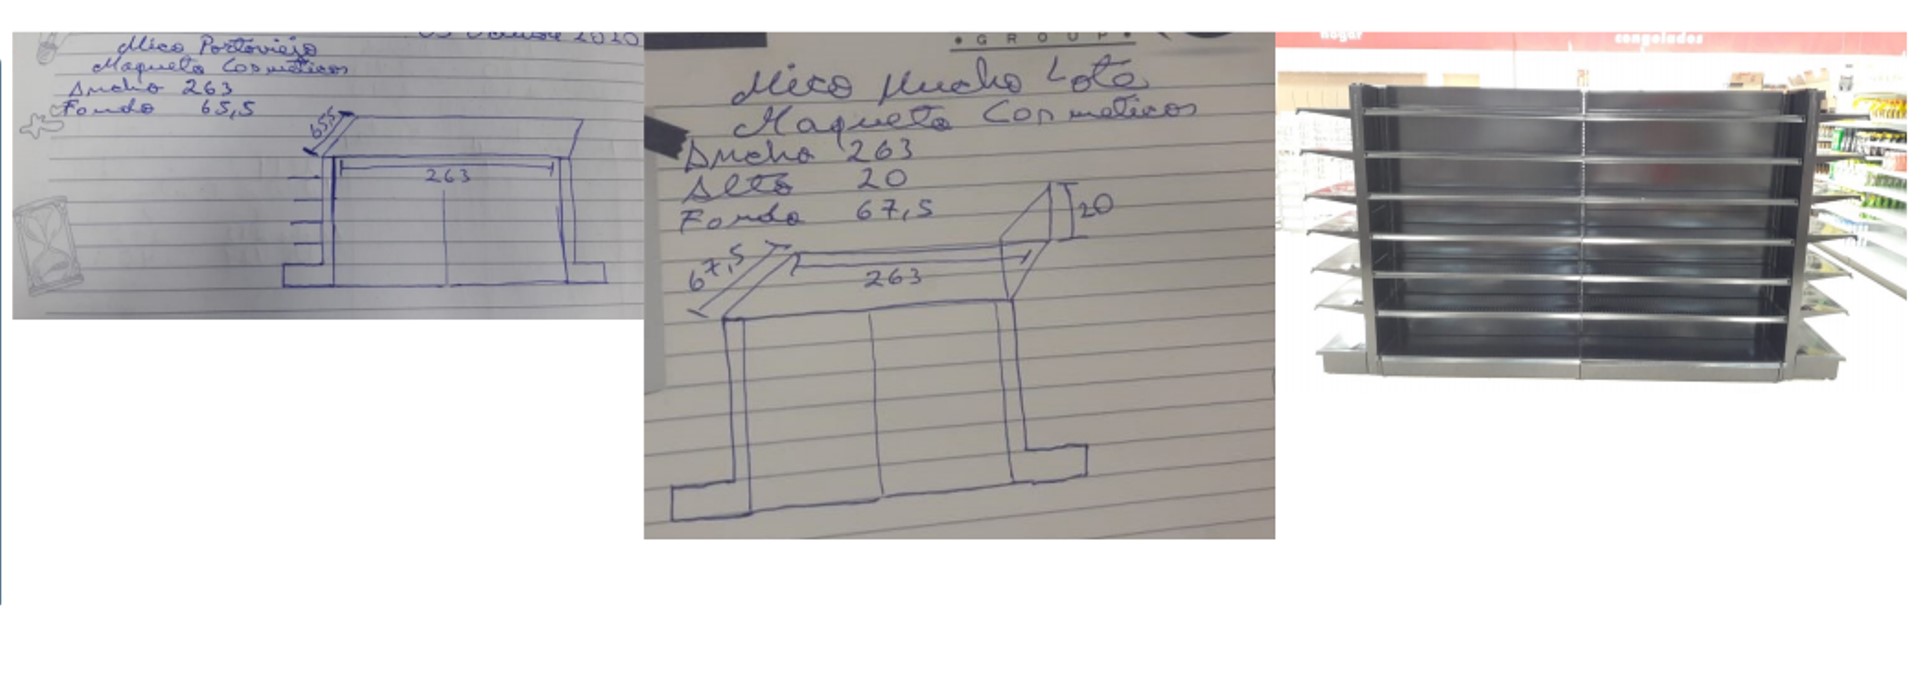 Mico Portoviejo
Maqueta Cosmeticos
Ancho 263
Fondo 65,5
65,5
263
GROUP
Mico Mucho Lote
Maqueta Cosmeticos
Ancho 263
Alto 20
Fondo 67,5
20
67,5
263
hogar
congelados